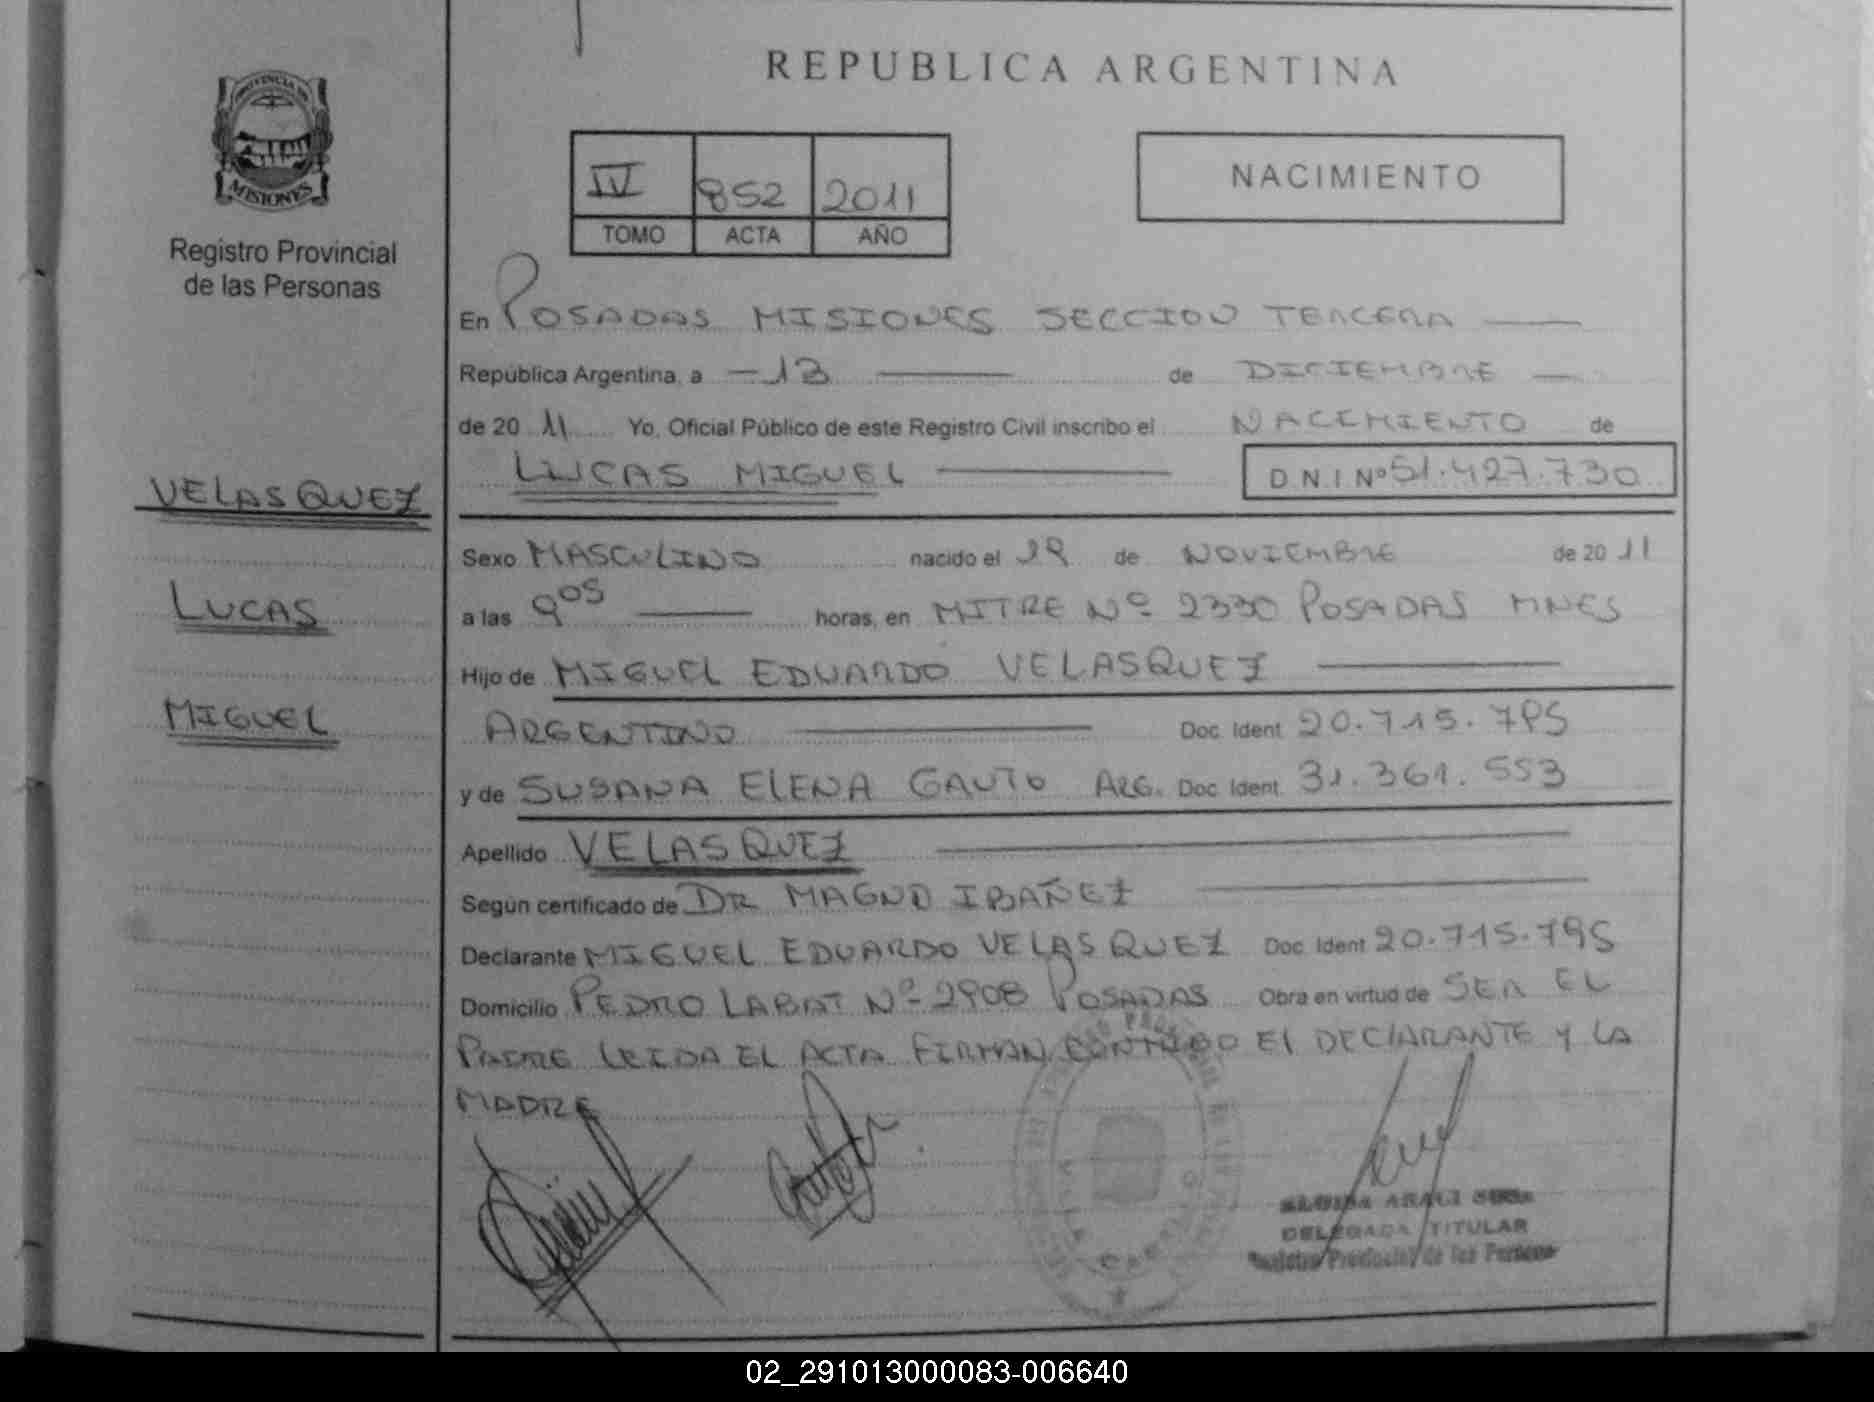 REPUBLICA ARGENTINA
PROVINCIA DE
MISIONES
Registro Provincial
de las Personas
IV 852 2011
TOMO ACTA AÑO
NACIMIENTO
En POSADAS MISIONES SECCION TERCERA
República Argentina, a 13 de DICIEMBRE
de 20 11 Yo, Oficial Público de este Registro Civil inscribo el NACIMIENTO de
LUCAS MIGUEL D.N.I Nº 51.427.730
VELASQUEZ
LUCAS
MIGUEL
Sexo MASCULINO nacido el de NOVIEMBRE de 20 11
a las 9 05 horas, en MITRE Nº 2330 POSADAS MNES
Hijo de MIGUEL EDUARDO VELASQUEZ
ARGENTINO Doc. Ident 20.715.795
y de SUSANA ELENA GAUTO ARG. Doc. Ident. 31.361.553
Apellido VELASQUEZ
Según certificado de DR MAGNO IBAÑEZ
Declarante MIGUEL EDUARDO VELASQUEZ Doc. Ident 20.715.795
Domicilio PEDRO LABAT Nº 2908 POSADAS Obra en virtud de SER EL
PADRE LEIDA EL ACTA FIRMAN CONMIGO El DECLARANTE Y LA
MADRE
DELEGADA TITULAR
Registro Provincial de las Personas
02_291013000083-006640